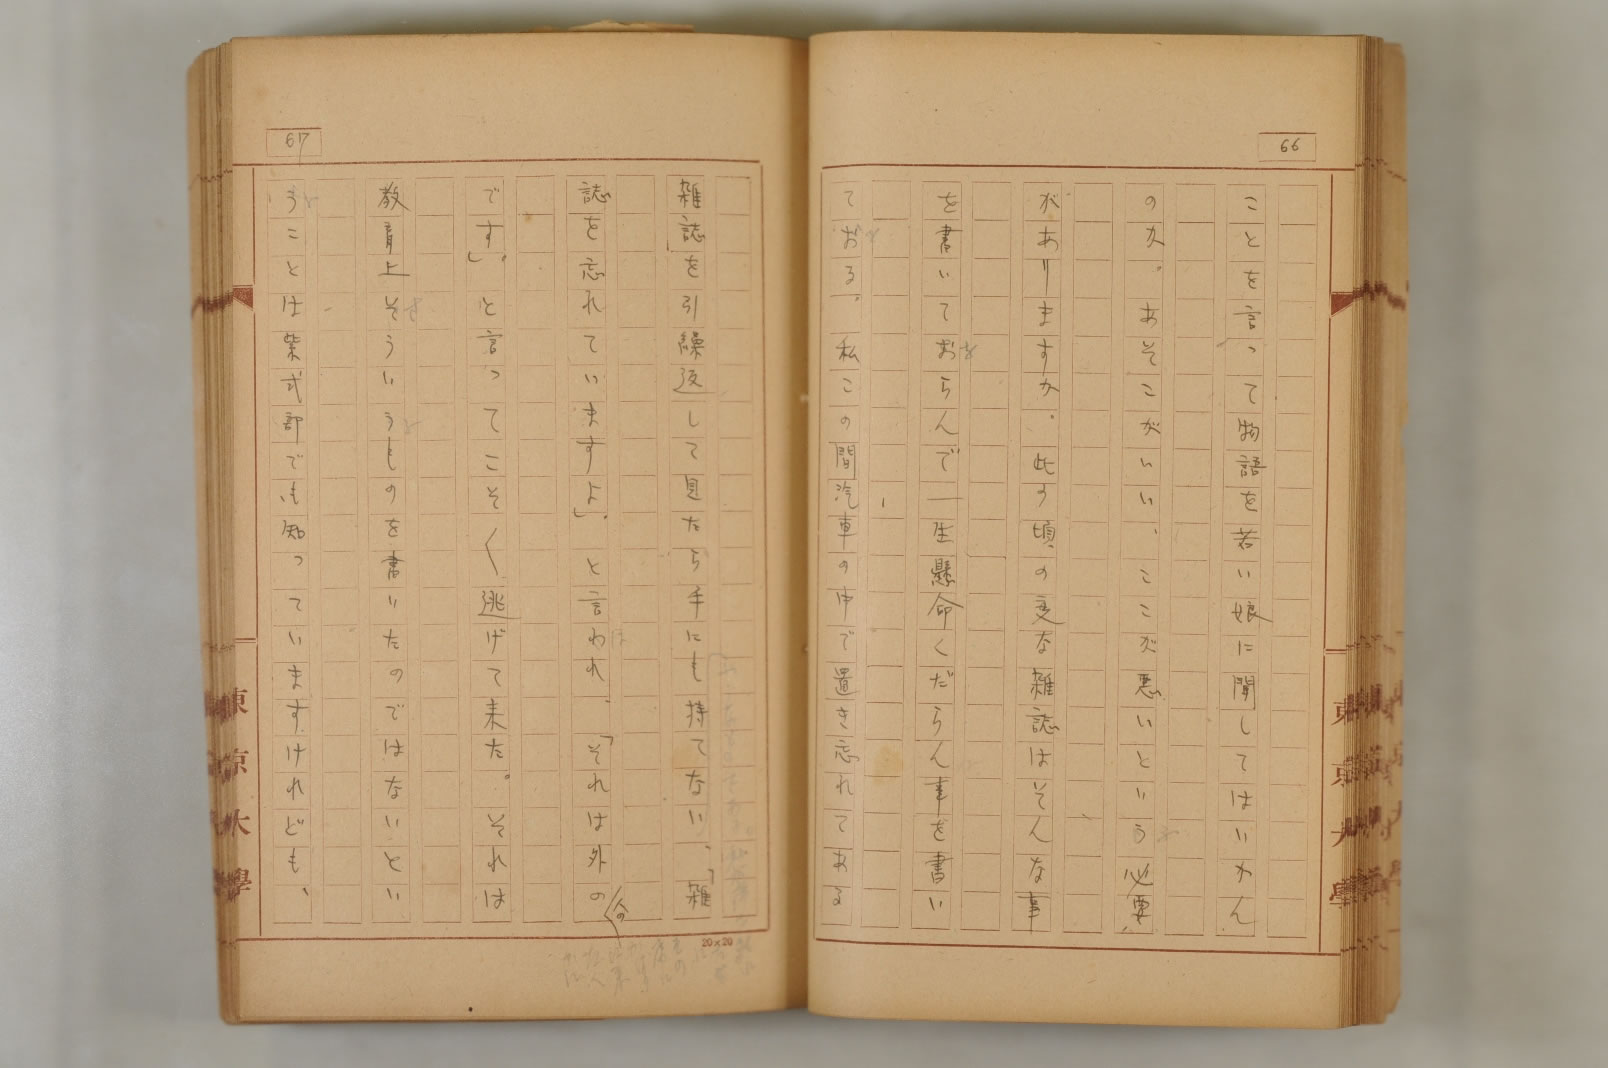 66
ことを言って物語を若い娘に聞してはいかん
のか。あそこがいい、ここが悪いという必要
がありますか。此の頃の変な雑誌はそんな事
を書いておらんで一生懸命くだらん事を書い
ておる。私この間汽車の中で置き忘れてある
東京大學
67
雑誌を引繰返して見たら手にも持てない、「雑
誌を忘れていますよ」。と言われ、「それは外の
人の
です」。と言ってこそ〱逃げて来た。それは
教育上そういうものを書いたのではないとい
うことは紫式部でも知っていますけれども、
20×20
東京大學